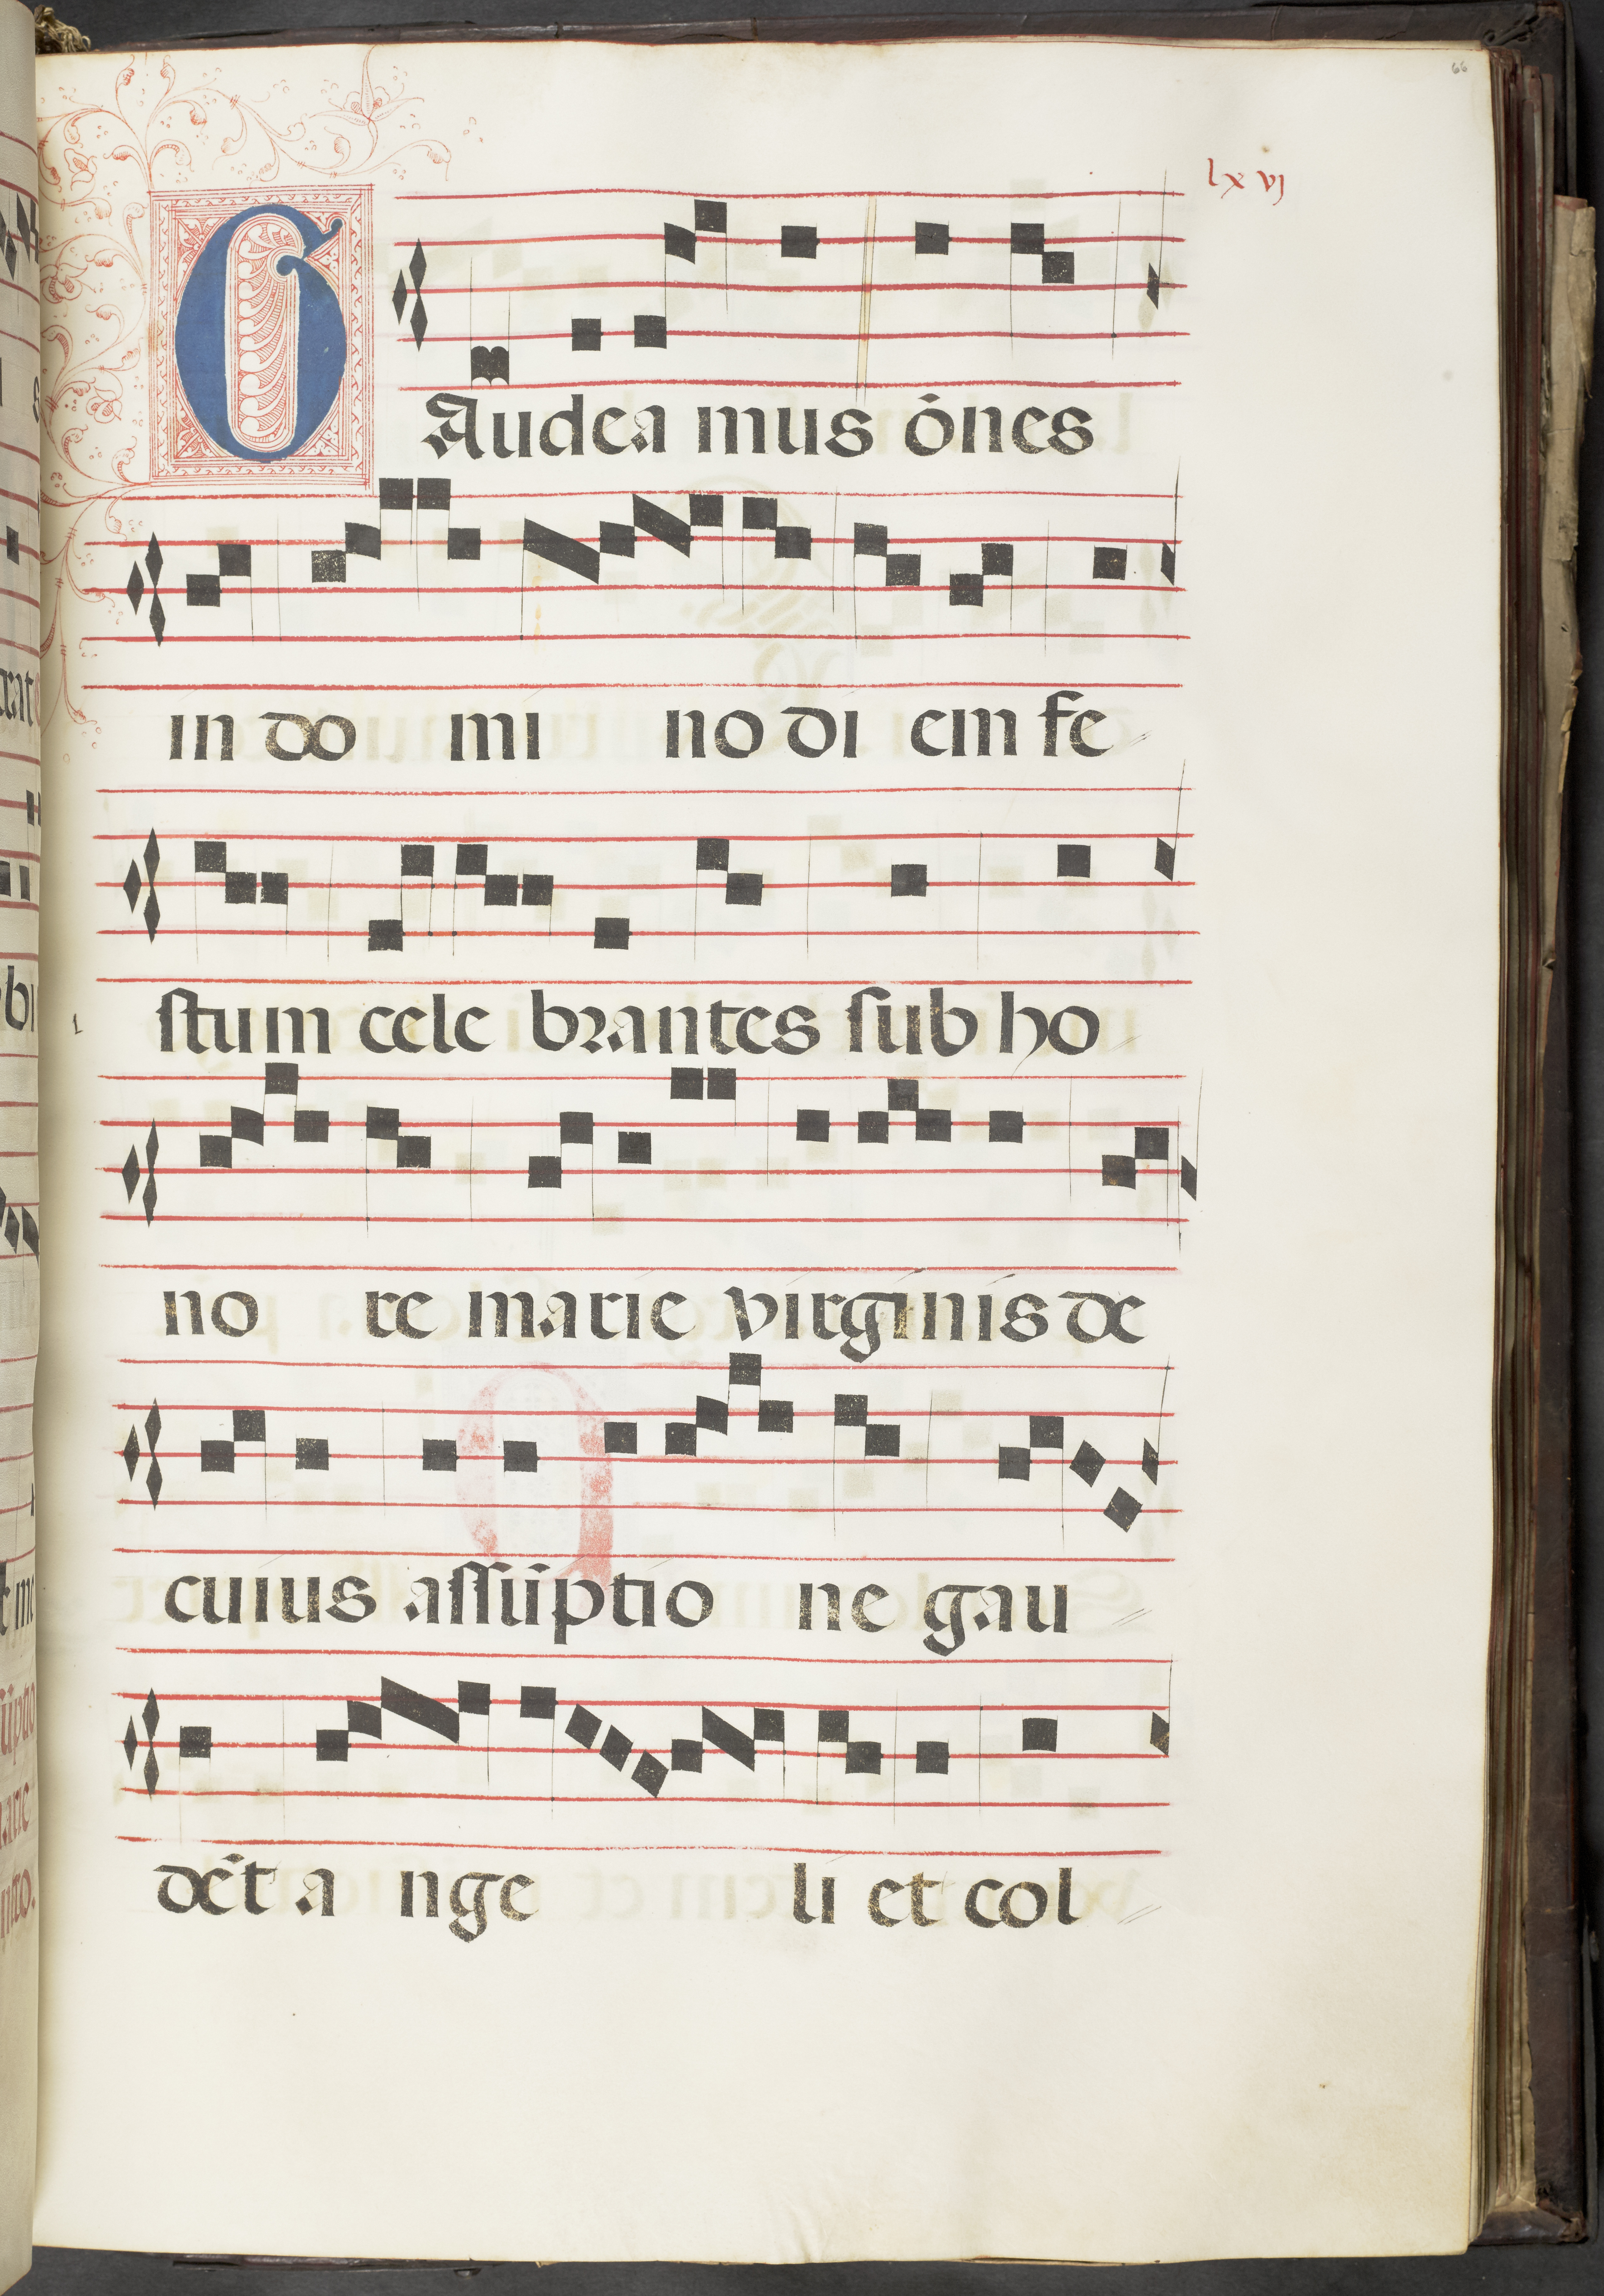 66
lxvj
GAudea mus ōnes
in do mi no di em fe
stum cele brantes sub ho
no re marie virginis de
cuius assūptio ne gau
dēt a nge li et col